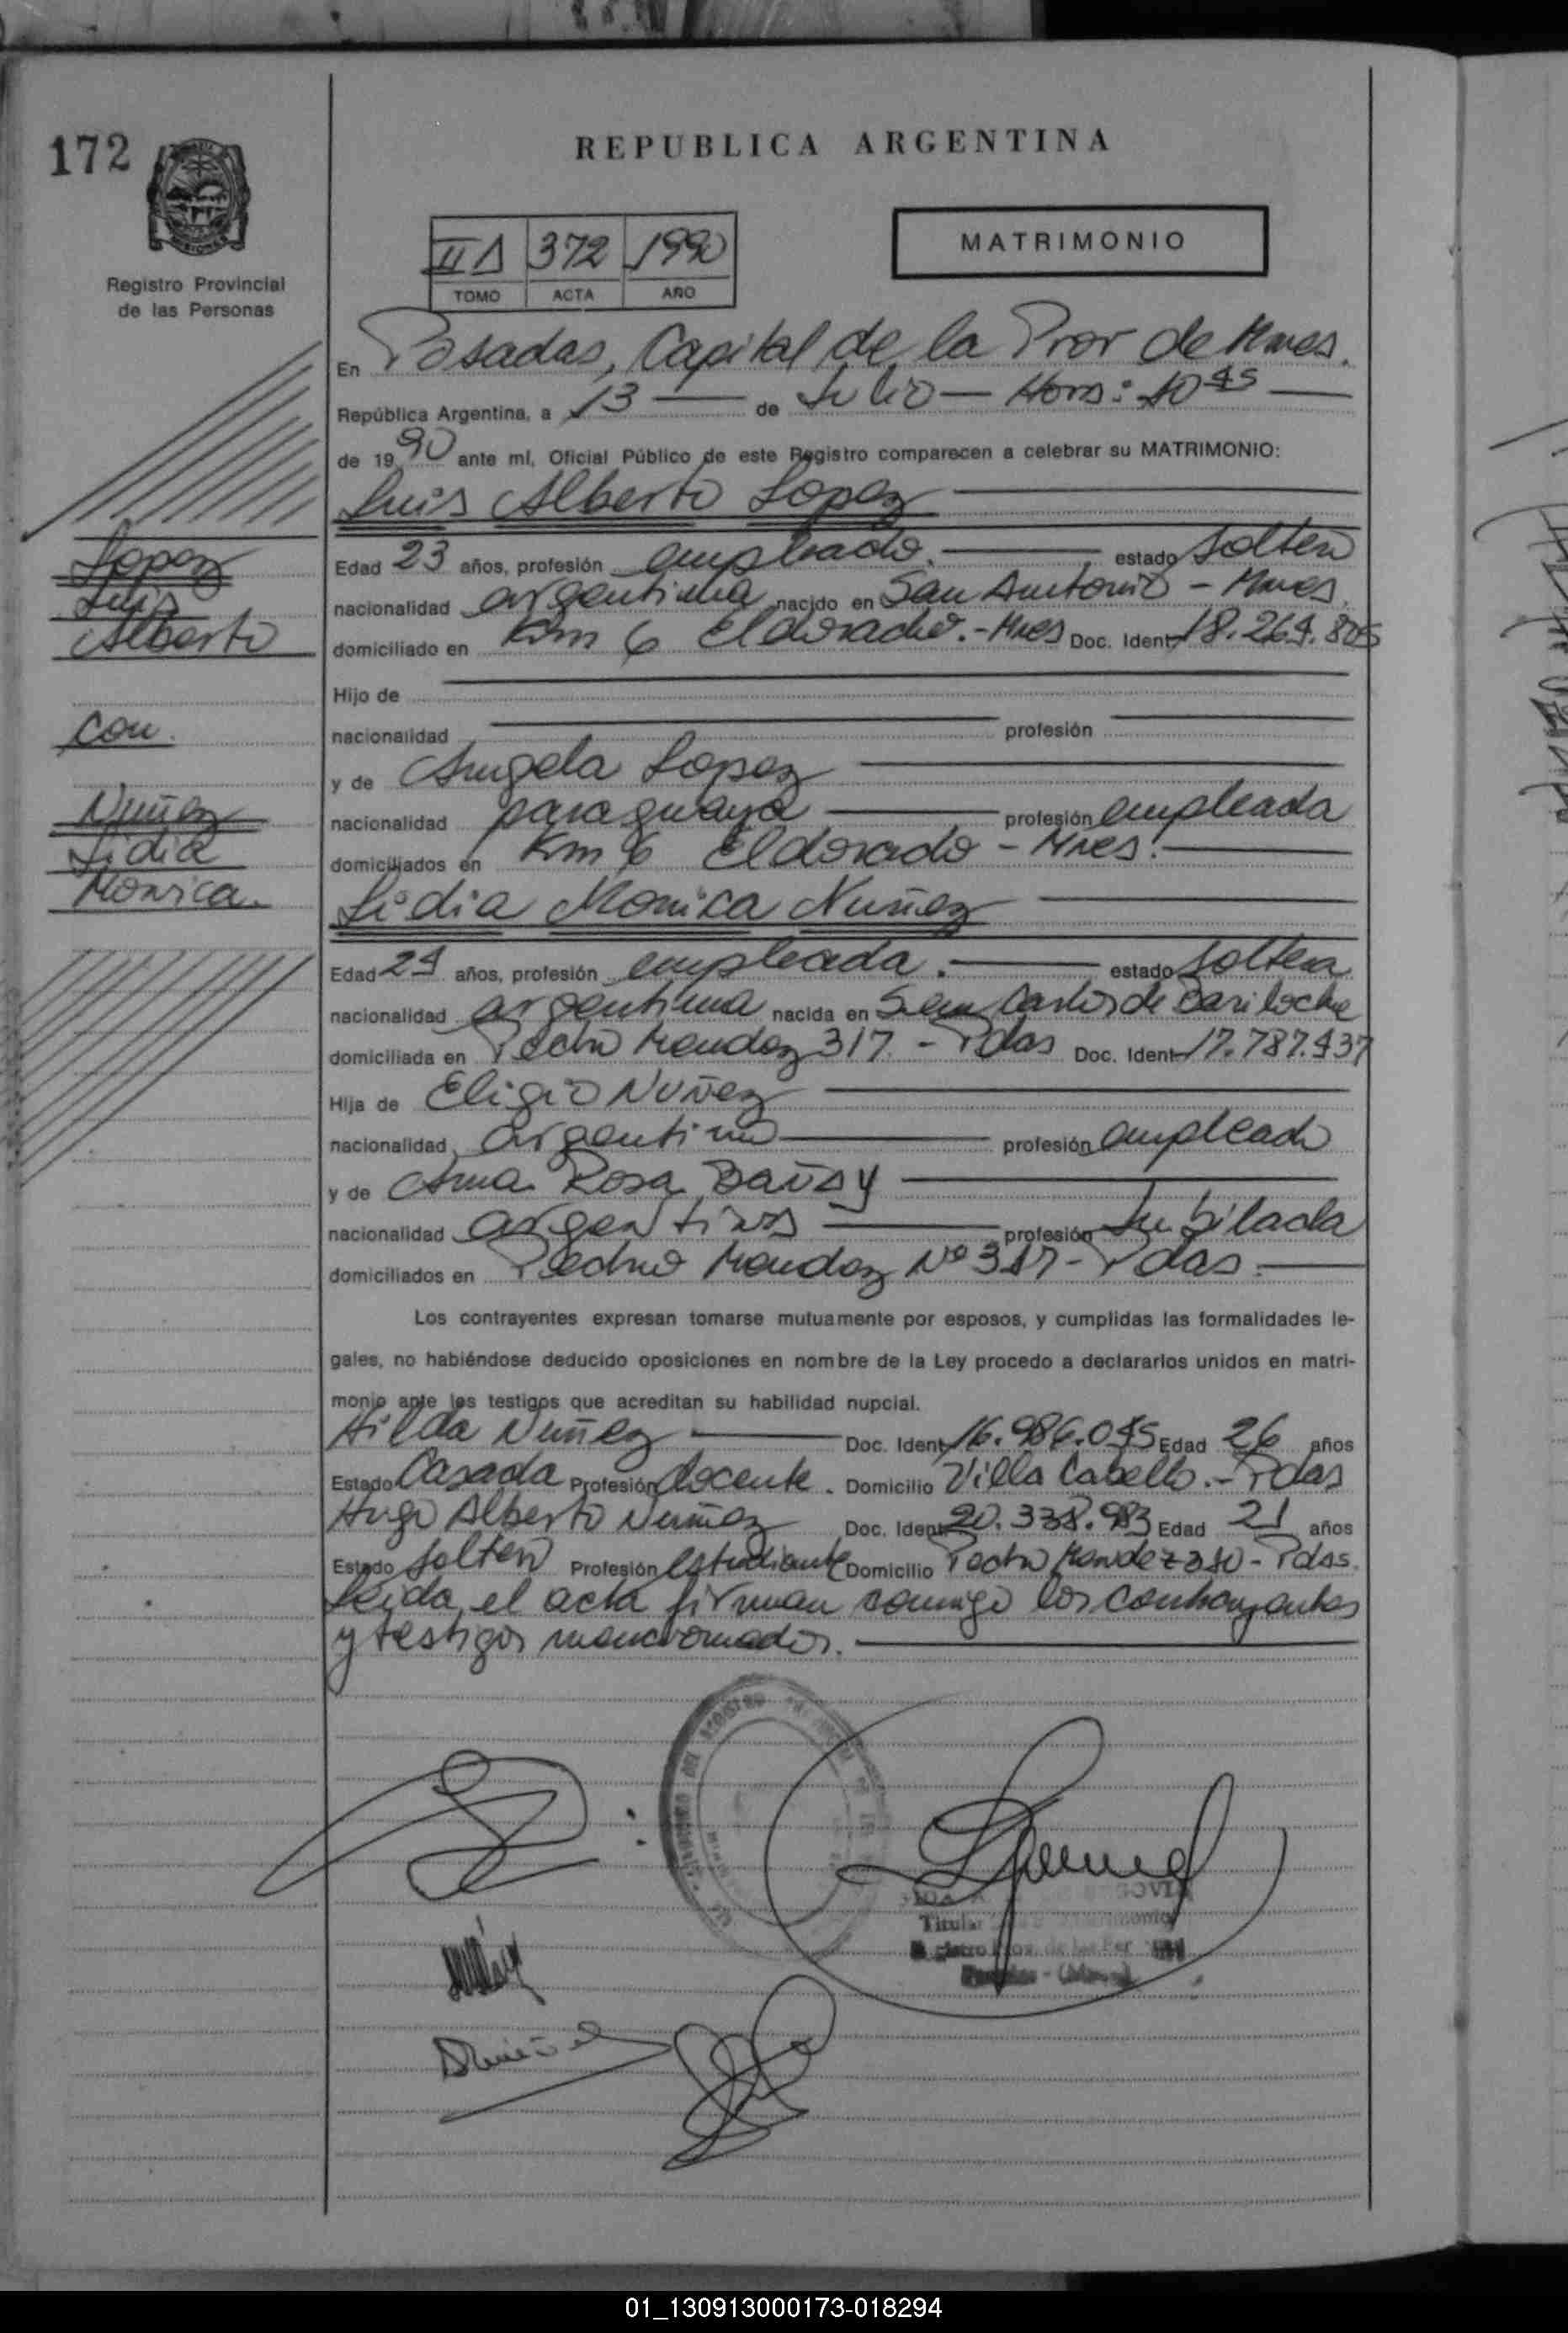 172
REPUBLICA ARGENTINA
Registro Provincial
de las Personas
372 1990
TOMO ACTA AÑO
MATRIMONIO
En Posadas, Capital de la Prov de Mnes.
República Argentina, a 13 de Julio Hora: 10 45
de 1990 ante mí, Oficial Público de este Registro comparecen a celebrar su MATRIMONIO:
Luis Alberto Lopez
Lopez
Luis
Alberto
con.
Nuñez
Lidia
Monica.
Edad 23 años, profesión empleado. estado soltero
nacionalidad argentina nacido en San Antonio - Mnes.
domiciliado en Km 6 Eldorado.-Mnes Doc. Ident. 18.264.805
Hijo de
nacionalidad profesión
y de Angela Lopez
nacionalidad paraguaya profesión empleada
domiciliados en Km 6 Eldorado - Mnes.
Lidia Monica Nuñez
Edad 24 años, profesión empleada. estado soltera
nacionalidad argentina nacida en San Carlos de Bariloche
domiciliada en Pedro Mendez 317 - Pdas Doc. Ident. 17.787.437
Hija de Eligio Nuñez
nacionalidad argentino profesión empleado
y de Ana Rosa
nacionalidad profesión Jubilada
domiciliados en Pedro Mendez Nº 317 - Pdas.
Los contrayentes expresan tomarse mutuamente por esposos, y cumplidas las formalidades le-
gales, no habiéndose deducido oposiciones en nombre de la Ley procedo a declararlos unidos en matri-
monio ante los testigos que acreditan su habilidad nupcial.
Hilda Nuñez Doc. Ident. 16.986.045 Edad 26 años
Estado Casada Profesión docente. Domicilio Villa Cabello.- Pdas
Hugo Alberto Nuñez Doc. Ident. 20.338.983 Edad 21 años
Estado soltero Profesión estudiante Domicilio Pedro Mendez - Pdas.
Leida el acta firman conmigo los contrayentes
y testigos mencionados.
Titular
01_130913000173-018294